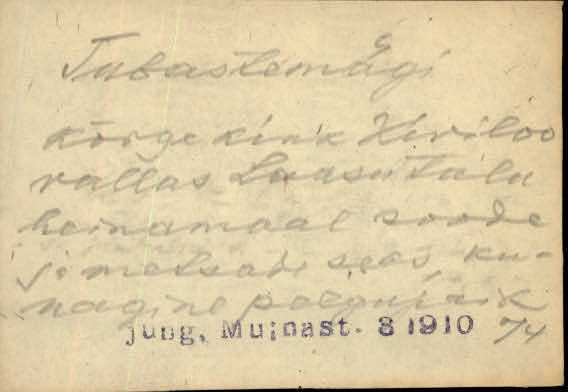 Tubastemägi
kõrge kink Hiriloo
vallas Luasu Talu
heinamaal soode
ji metsade sees, ku-
nagine paegupaik
Jung, Muinast. 8 1910 74